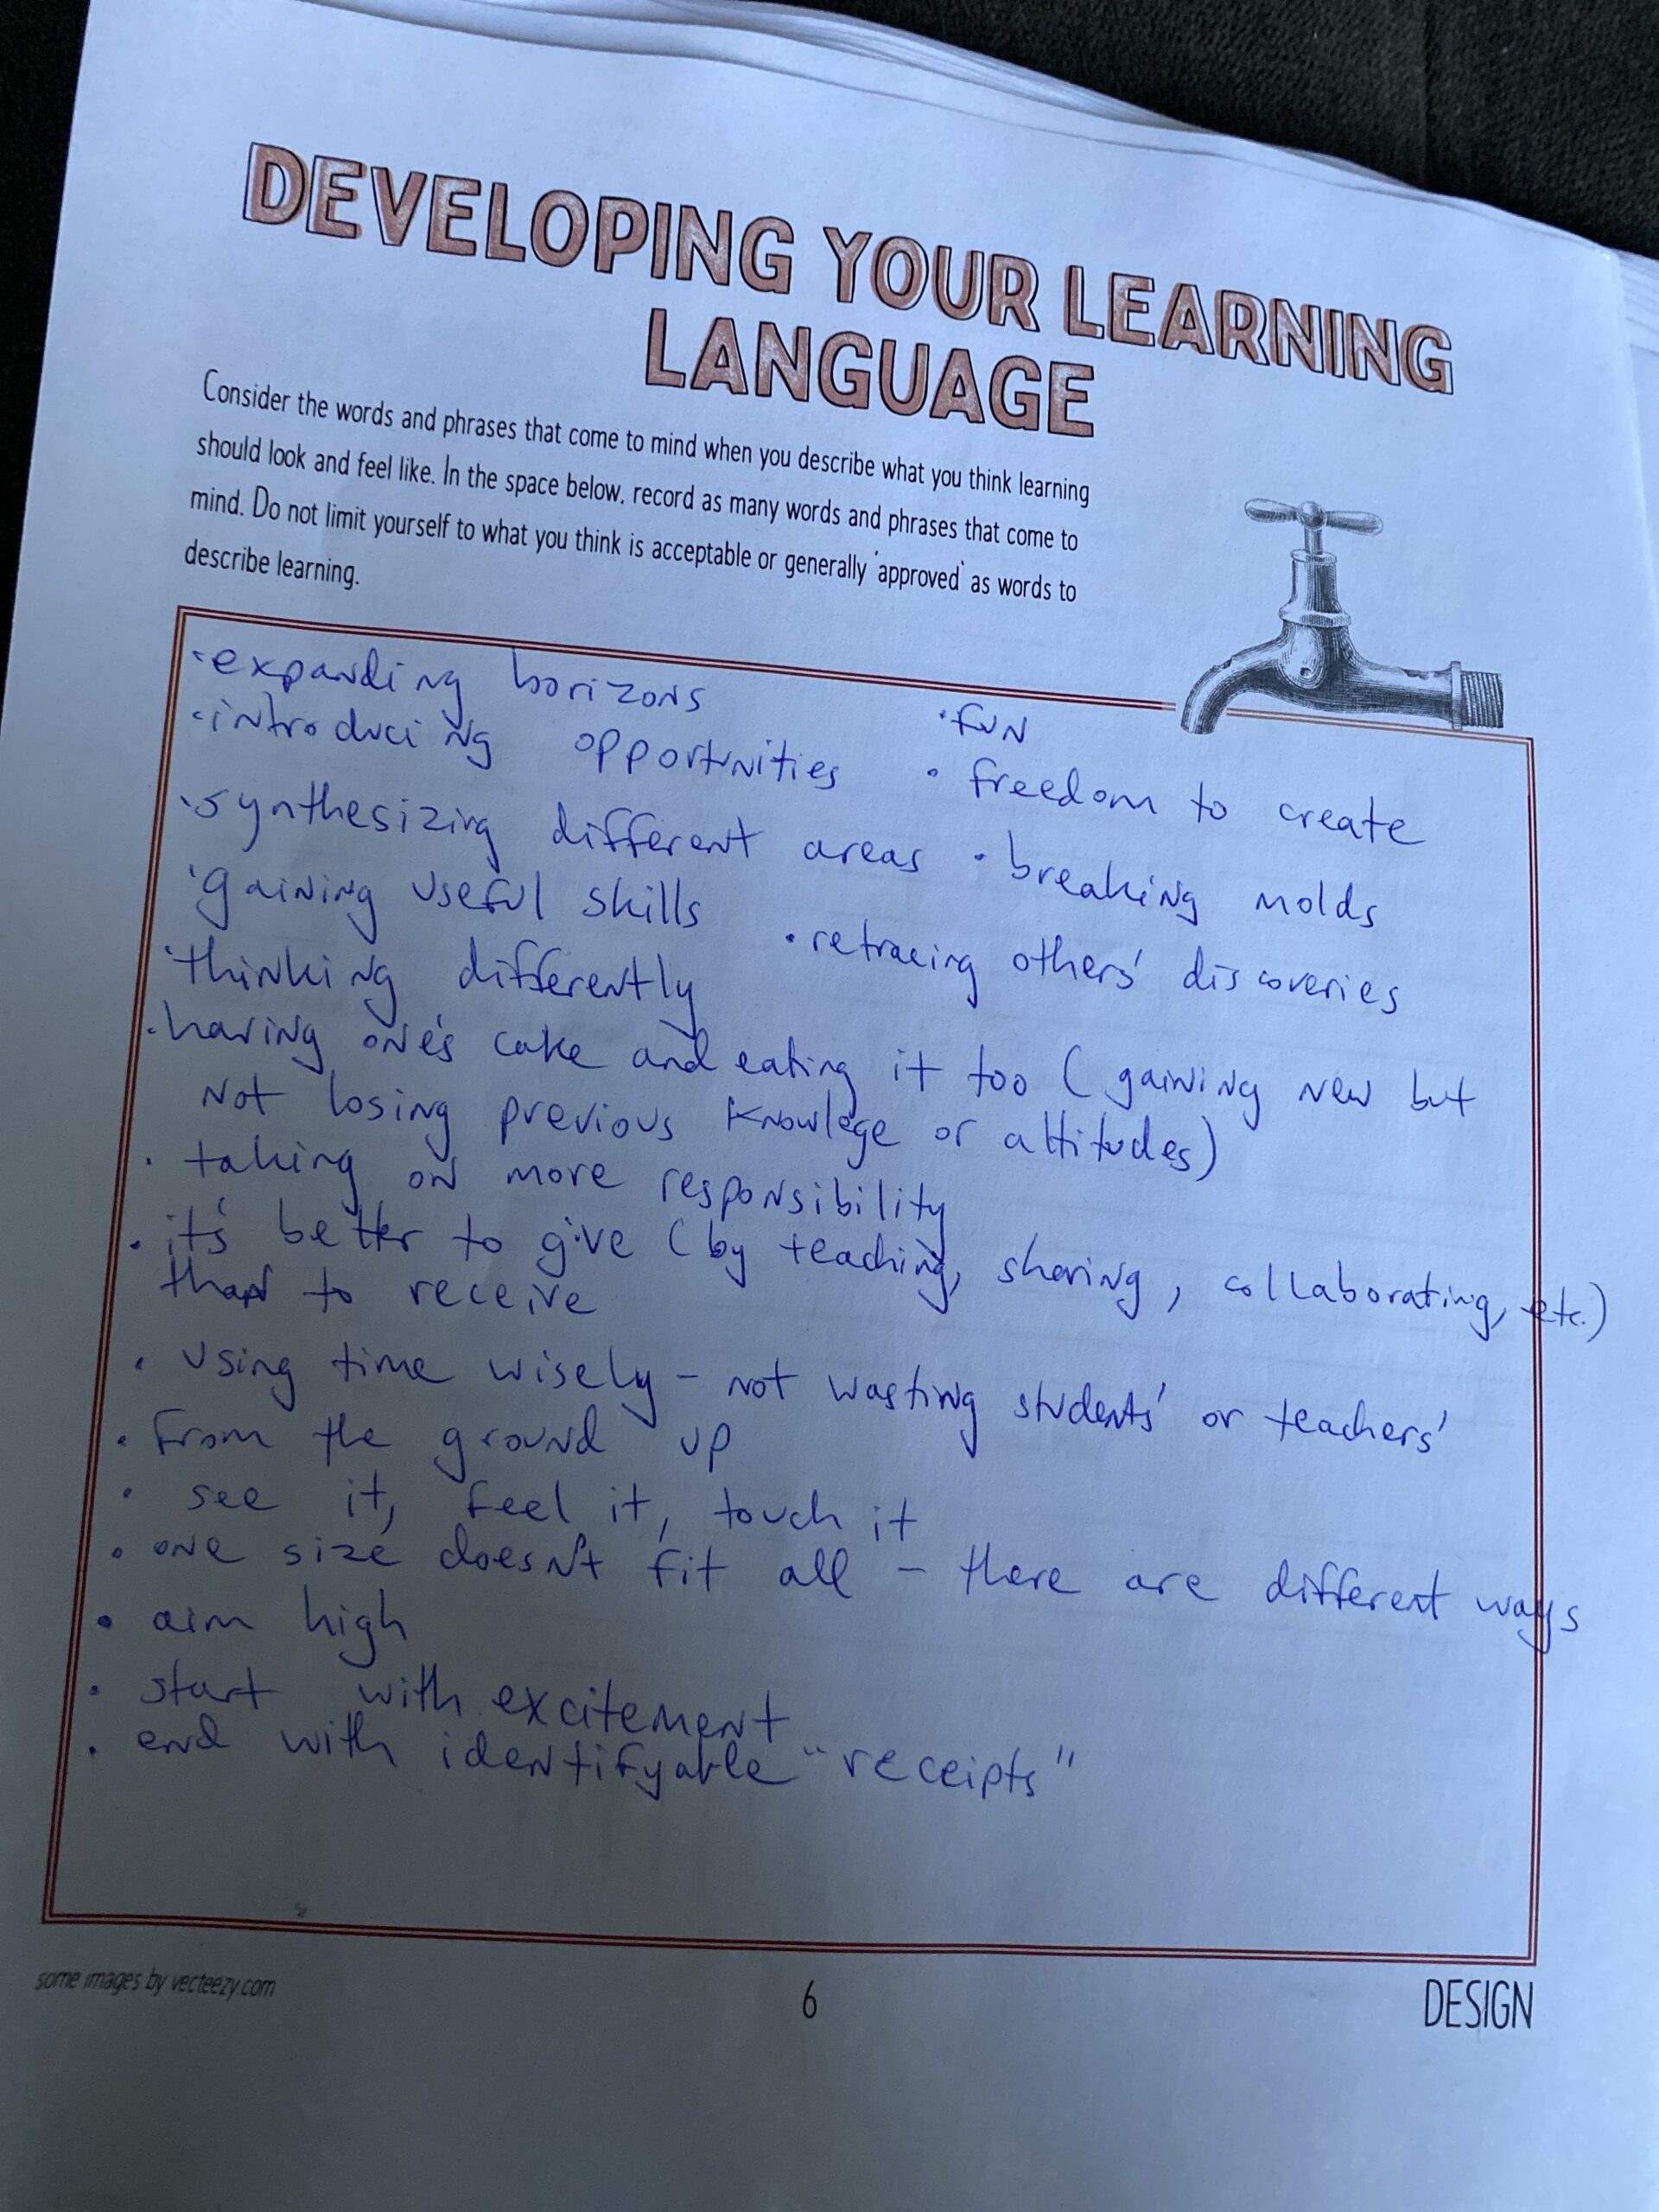 DEVELOPING YOUR LEARNING
LANGUAGE
Consider the words and phrases that come to mind when you describe what you think learning
should look and feel like. In the space below, record as many words and phrases that come to
mind. Do not limit yourself to what you think is acceptable or generally 'approved' as words to
describe learning.
• expanding horizons
• introducing opportunities
• synthesizing different areas
• gaining useful skills
• thinking differently
• fun
• freedom to create
• breaking molds
• retracing others' discoveries
• having one's cake and eating it too (gaining new but
not losing previous knowlege or attitudes)
• taking on more responsibility
• it's better to give (by teaching, sharing, collaborating, etc.)
than to receive
• using time wisely - not wasting students' or teachers'
• from the ground up
• see it, feel it, touch it
• one size doesn't fit all - there are different ways
• aim high
• start with excitement
• end with identifyable "receipts"
some images by vecteezy.com
6
DESIGN